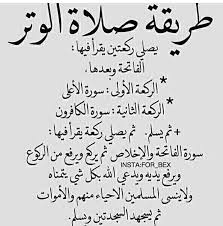 طريقة صلاة الوتر
يصلي ركعتين يقرأ فيها:
الفاتحة وبعدها.
* الركعة الأولى: سورة الأعلى
* الركعة الثانية: سورة الكافرون
+ ثم يسلم. ثم يصلي ركعة يقرأ فيها:
سورة الفاتحة والإخلاص ثم يركع ويرفع من الركوع
INSTA:FOR_BEX
ويرفع يديه ويدعي الله بكل شي يتمناه
ولا ينسى المسلمين الاحياء منهم والأموات
ثم يسجهد السجدتين ويسلم.